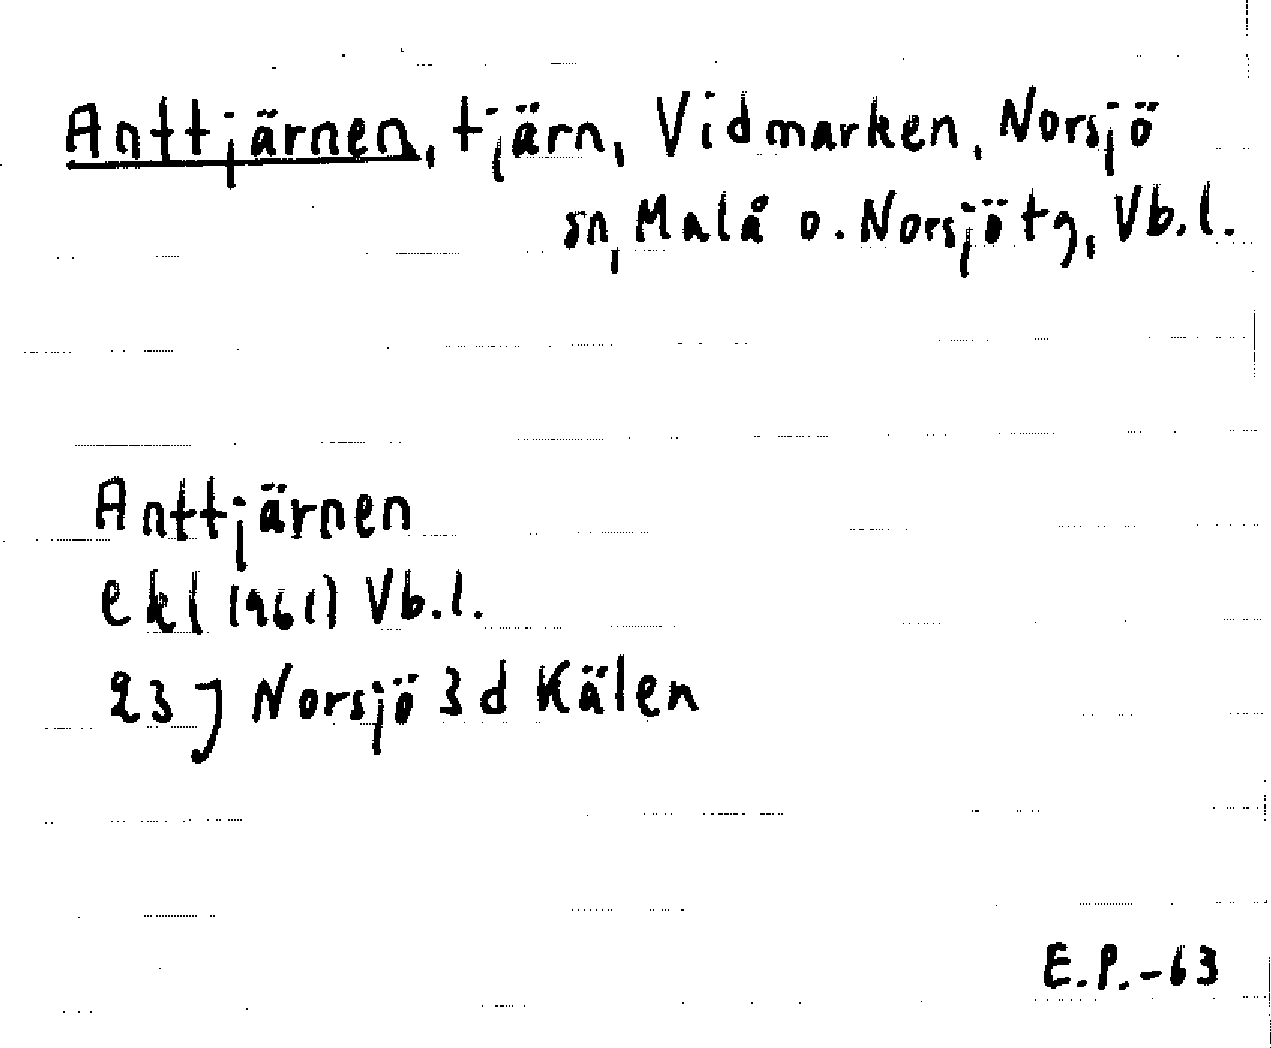 Anttjärnen, tjärn, Vidmarken, Norsjö
sn, Malå o. Norsjö tg, Vb.l.
Anttjärnen
ekl (1961) Vb.l.
23 J Norsjö 3 d Kälen
E.P.-63